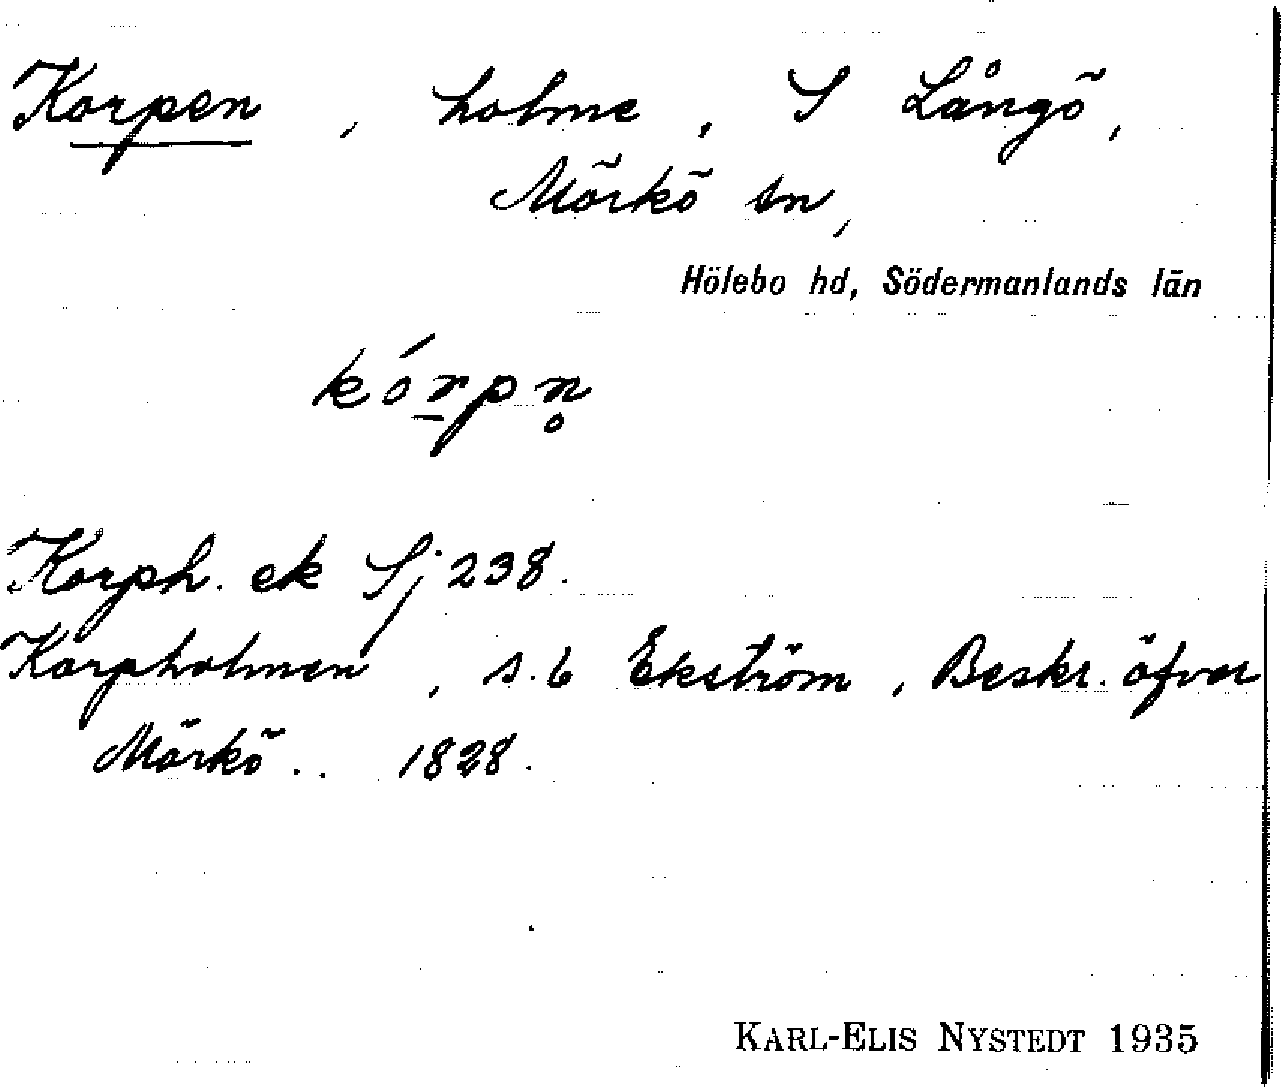 Korpen, holme, S Långö,
Mörkö sn,
Hölebo hd, Södermanlands län
kórpn̥
Korph. ek Sj 238.
Korpholmen, s. 6 Ekström, Beskr. öfver
Mörkö .. 1828.
KARL-ELIS NYSTEDT 1935